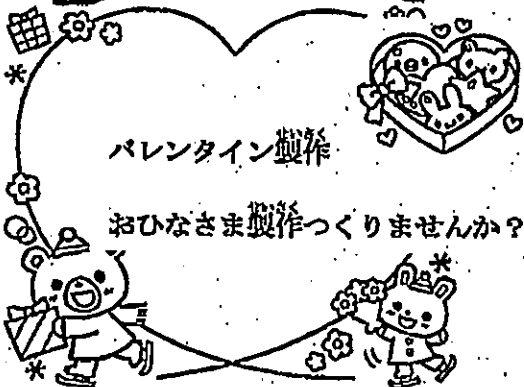 バレンタイン製作
おひなさま製作つくりませんか?